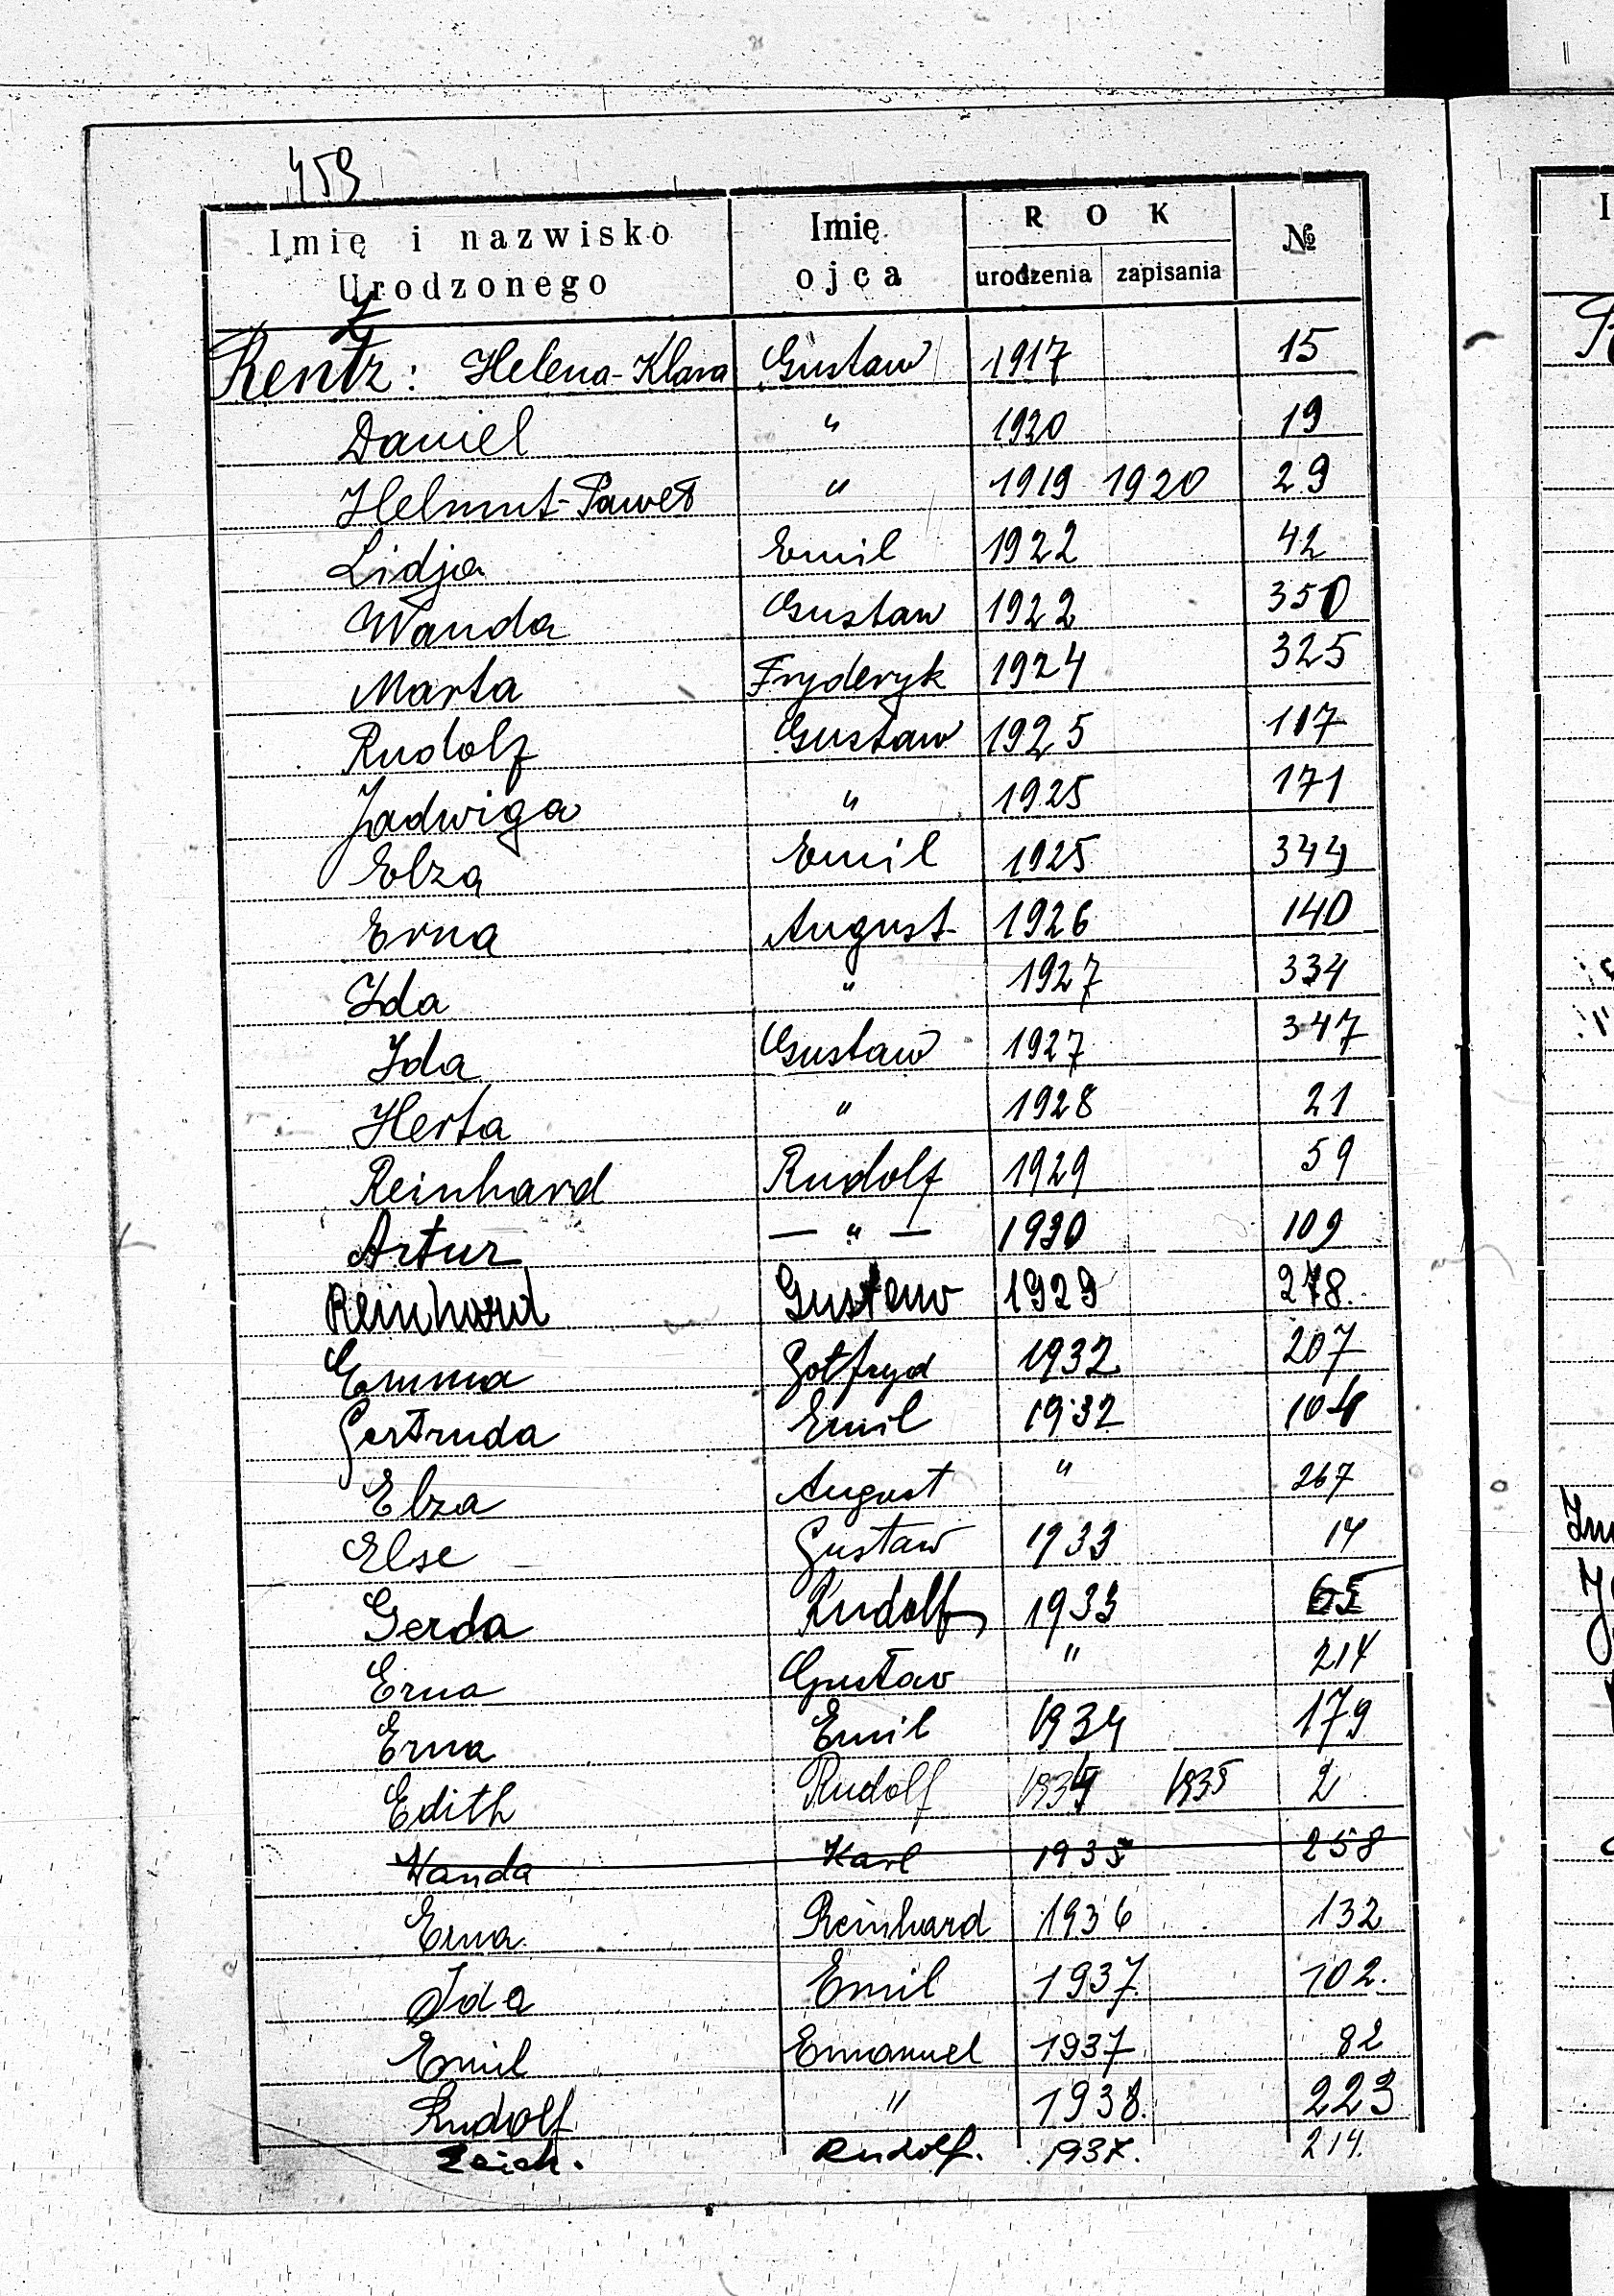 459
Imię i nazwisko Urodzonego Imię ojca ROK urodzenia zapisania №
Rentz: Helena-Klara Gustaw 1917 15
Daniel " 1920 19
Helmut-Paweł " 1919 1920 29
Lidja Emil 1922 42
Wanda Gustaw 1922 350
Marta Fryderyk 1924 325
Rudolf Gustaw 1925 117
Jadwiga " 1925 171
Elza Emil 1925 344
Erna August 1926 140
Ida " 1927 334
Ida Gustaw 1927 347
Herta " 1928 21
Reinhard Rudolf 1929 59
Artur — " — 1930 109
Reinhard Gustaw 1929 278.
Emma Gotfryd 1932 207
Gertruda Emil 1932 104
Elza August " 267
Else Gustaw 1933 14
Gerda Rudolf 1933 65
Erna Gustaw " 214
Erna Emil 1934 179
Edith Rudolf 1934 1935 2
Wanda Karl 1935 258
Erna Reinhard 1936 132
Ida Emil 1937 102.
Emil Emanuel 1937 82
Rudolf " 1938. 223
Rudolf. 1937. 214.